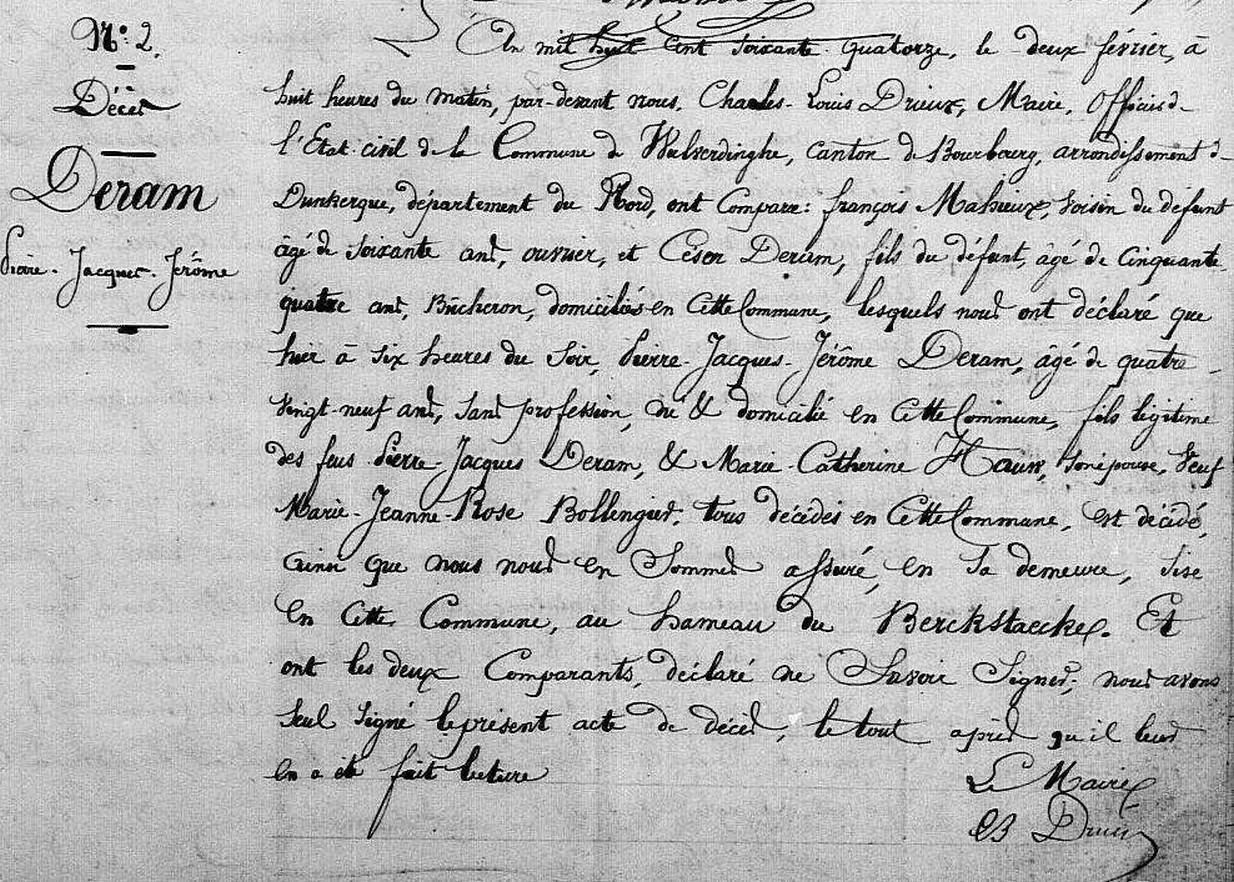 N°. 2.
Décès
Deram
Pierre-Jacques-Jérôme
An mil huit cent soixante quatorze, le deux février, à
huit heures du matin, par-devant nous, Charles-Louis Drieux, Maire, Officier d-
l'Etat-civil de la Commune de Wulverdinghe, canton de Bourbourg, arrondissement d-
Dunkerque, département du Nord, ont Comparu: françois Mahieux, voisin du défunt
âgé de soixante ans, ouvrier, et César Deram, fils du défunt, âgé de cinquante-
quatre ans, Bûcheron, domiciliés en Cette Commune, lesquels nous ont déclaré que
hier à six heures du soir, Pierre-Jacques-Jérôme Deram, âgé de quatre-
vingt-neuf ans, sans profession, né & domicilié en Cette Commune, fils légitime
des feus Pierre-Jacques Deram, & Marie-Catherine son épouse, Veuf
Marie-Jeanne-Rose Bollengier, tous décédés en Cette Commune, est décédé,
ainsi que nous nous en Sommes assuré, en sa demeure, sise
en Cette Commune, au hameau du Berckstaecke. Et
ont les deux Comparants, déclaré ne Savoir Signer; nous avons
seul signé le présent acte de décès, le tout après qu'il leur
en a été fait lecture
Le Maire
Drieux